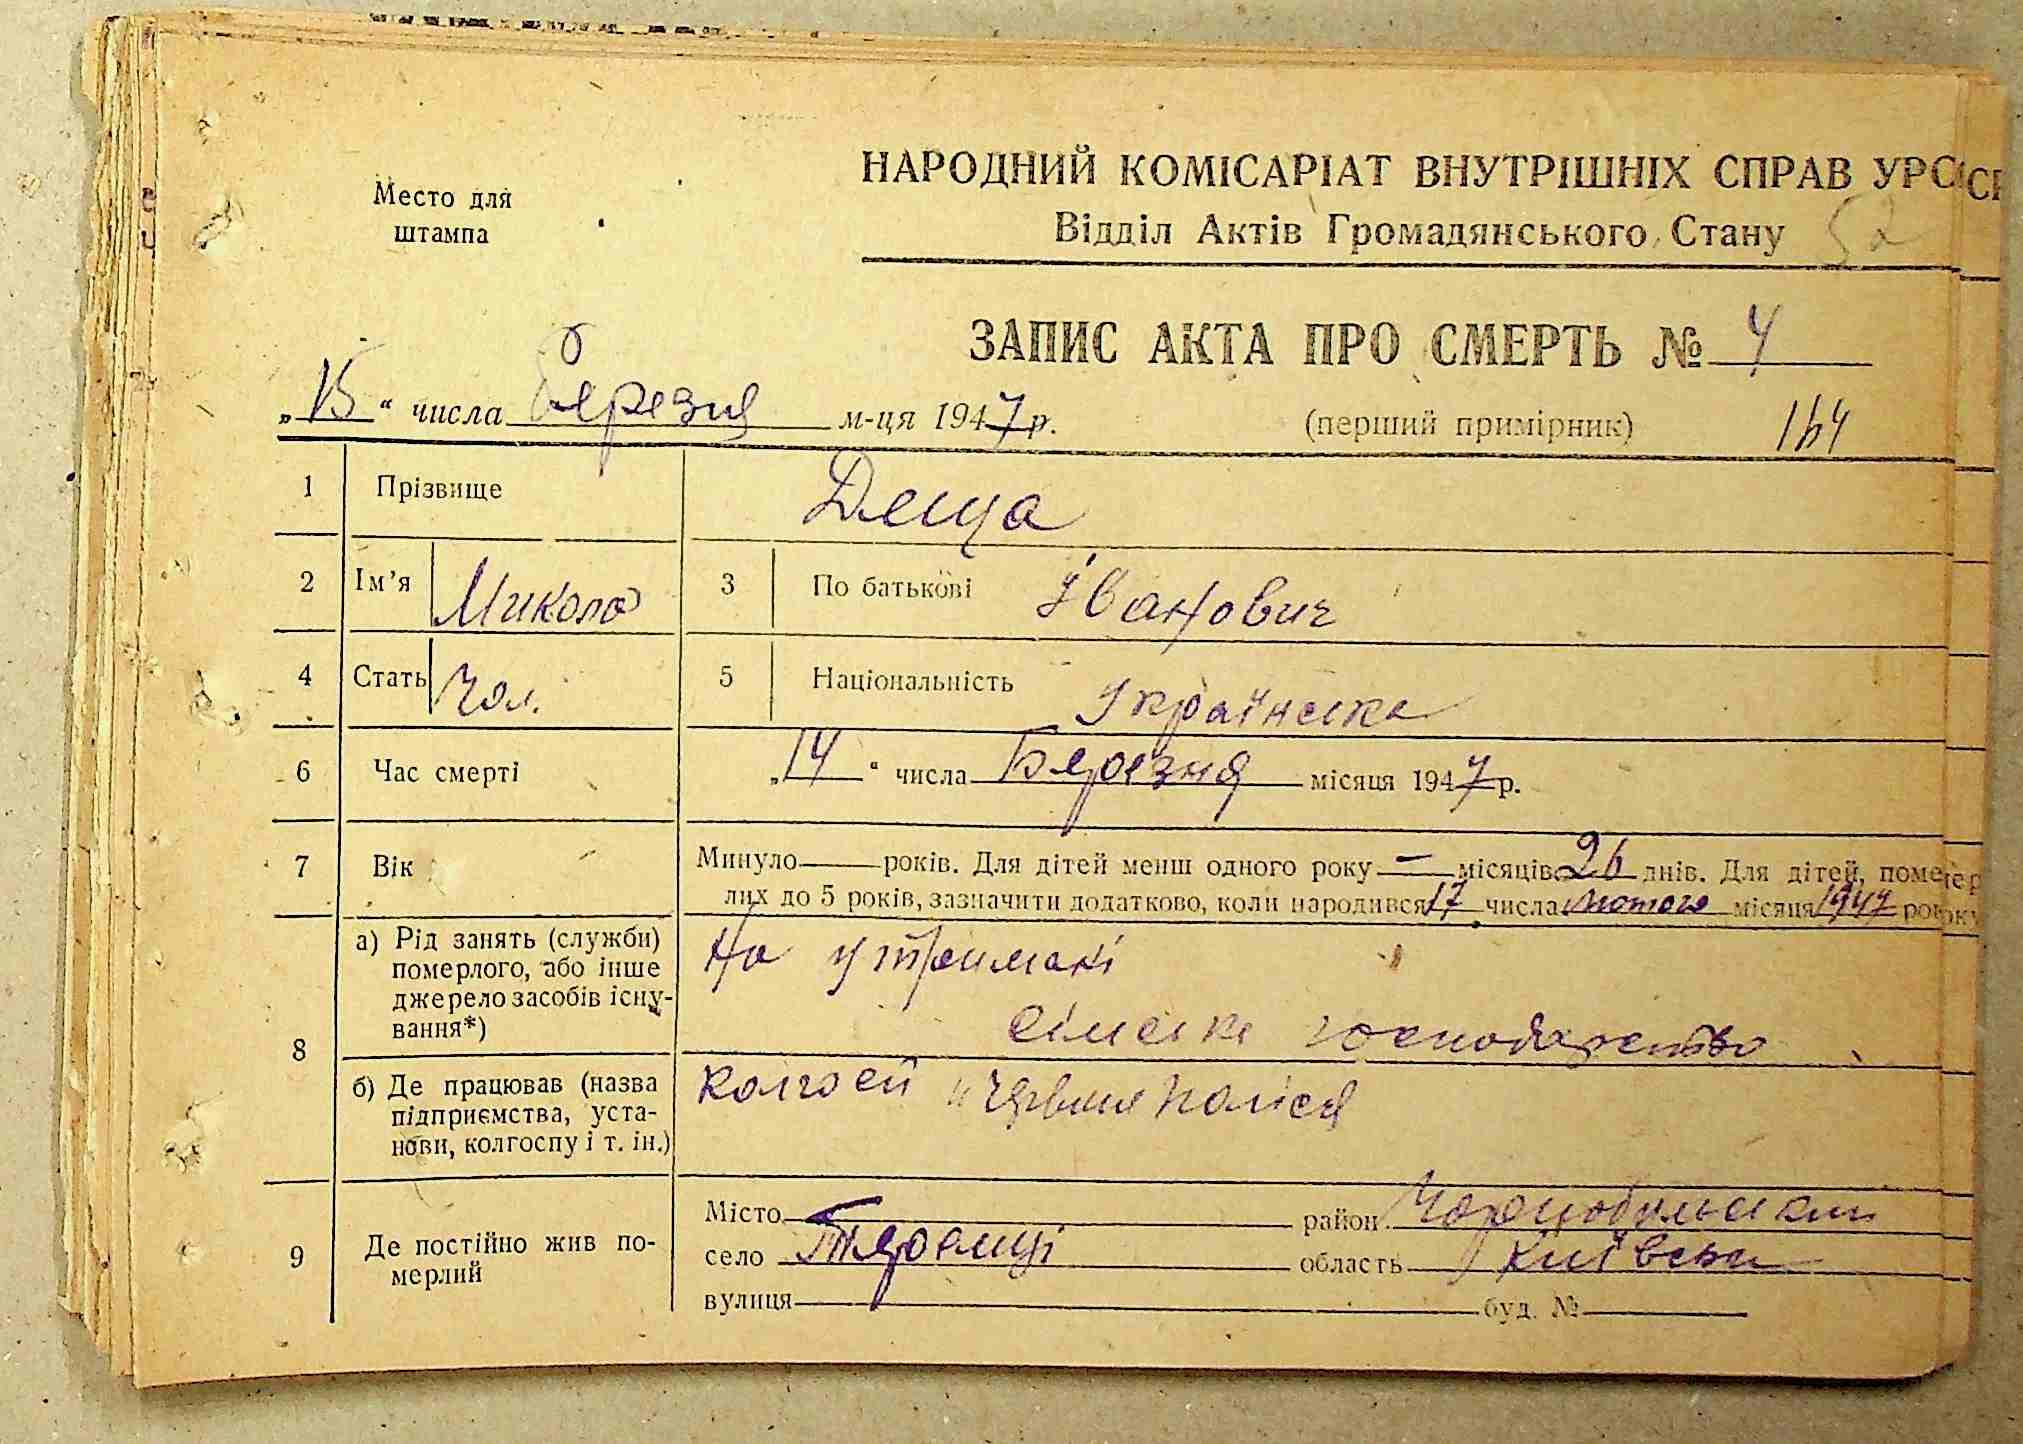 Место для
штампа
НАРОДНИЙ КОМІСАРІАТ ВНУТРІШНІХ СПРАВ УРС
Відділ Актів Громадянського Стану 52
ЗАПИС АКТА ПРО СМЕРТЬ № 4
„15“ числа Березня м-ця 1947 р. (перший примірник) 164
1 Прізвище Деща
2 Ім’я Микола 3 По батькові Іванович
4 Стать Чол. 5 Національність Українська
6 Час смерті „14“ числа Березня місяця 1947 р.
7 Вік Минуло — років. Для дітей менш одного року — місяців 26 днів. Для дітей, поме
лих до 5 років, зазначити додатково, коли народився 17 числа лютого місяця 1947 ро
8 а) Рід занять (служби)
померлого, або інше
джерело засобів існу-
вання*)
На утримакі
сільське господарство
б) Де працював (назва
підприємства, уста-
нови, колгоспу і т. ін.)
колгосп Полісся
9 Де постійно жив по-
мерлий
Місто район Чорнобильськи
село Теремці область Київська
вулиця буд. №